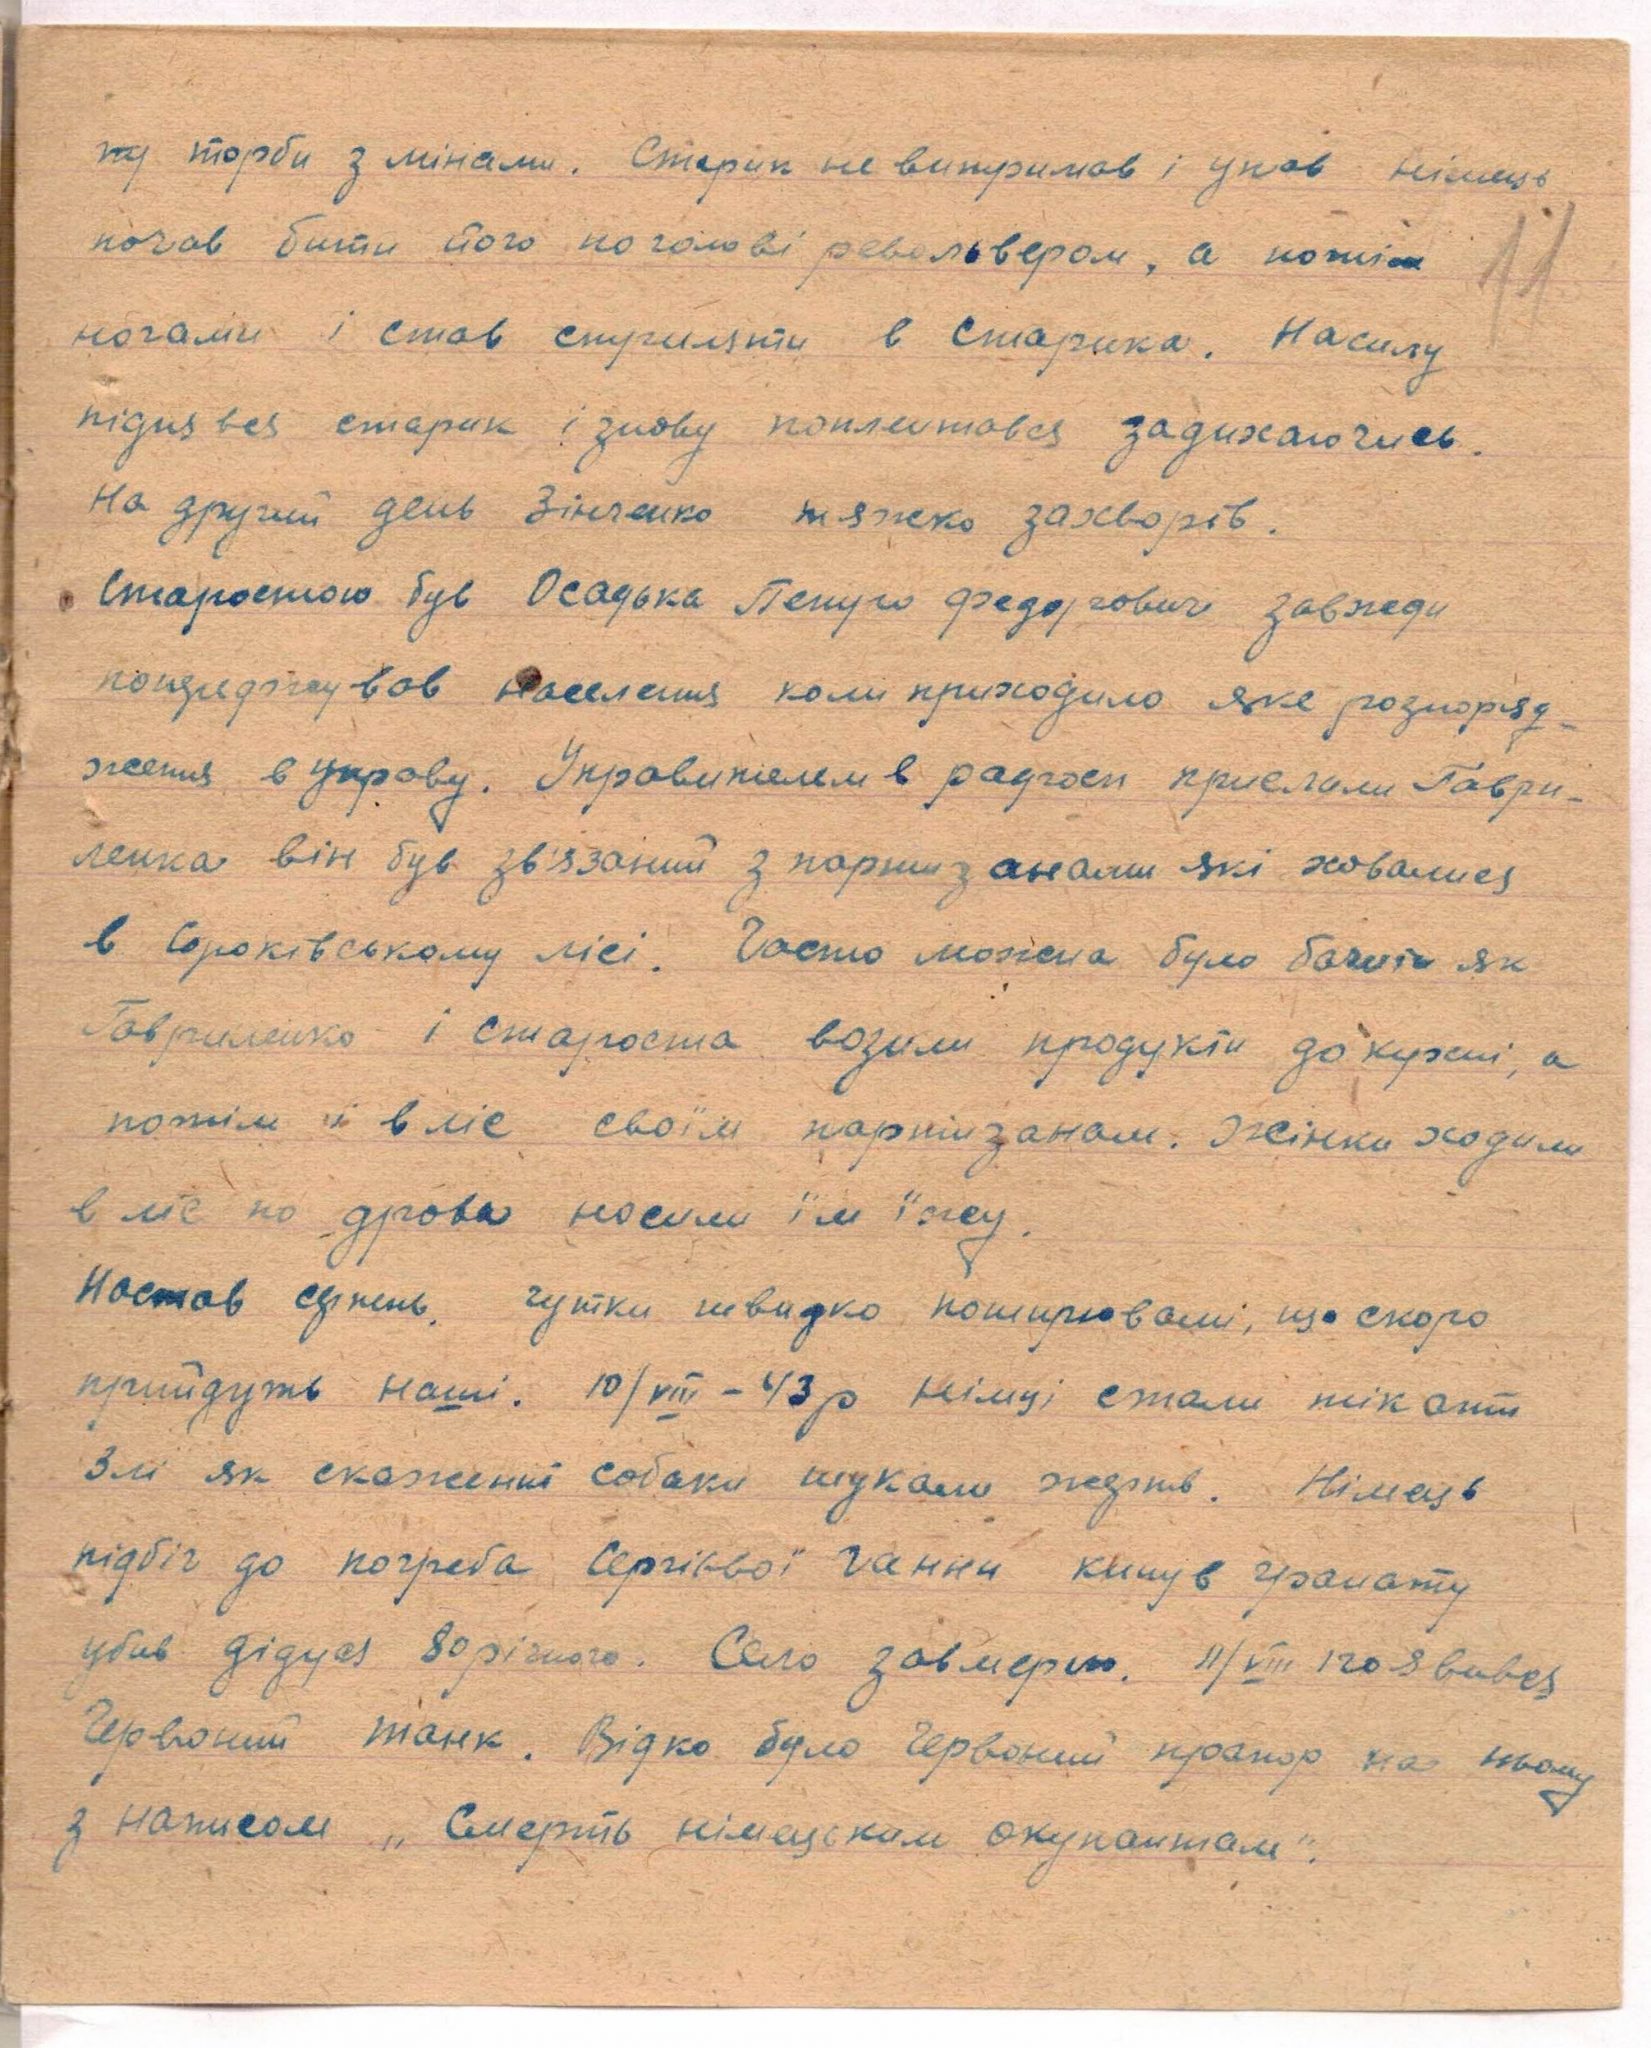 ну торби з мінами. Старик не витримав і упав німець
почав бити його по голові револьвером, а потім
11
ногами і став стріляти в старика. Насилу
піднявся старик і знову поплентався задихаючись.
На другий день Зінченко тяжко захворів.
Старостою був Осадька Петро Федорович завжди
попереджував населення коли приходило яке розпоряд-
ження в управу. Управителем в радгосп прислали Гаври-
ленка він був зв'язаний з партизанами які ховалися
в Сороківському лісі. Часто можна було бачити як
Гавриленко і староста возили продукти до кухні, а
потім і в ліс своїм партизанам. Жінки ходили
в ліс по дрова носили їм їжу.
Настав серпень. Чутки швидко поширювалі, що скоро
прийдуть наші. 10/VIII - 43 р німці стали тікати
Злі як скаженні собаки шукали жертв. Німець
підбіг до погреба Сергієвої Ганни кинув гранату
убив дідуся 80 річного. Село завмерло. 11/VIII появився
Червоний танк. Відко було Червоний прапор на ньому
з написом „Смерть німецьким окупантам".